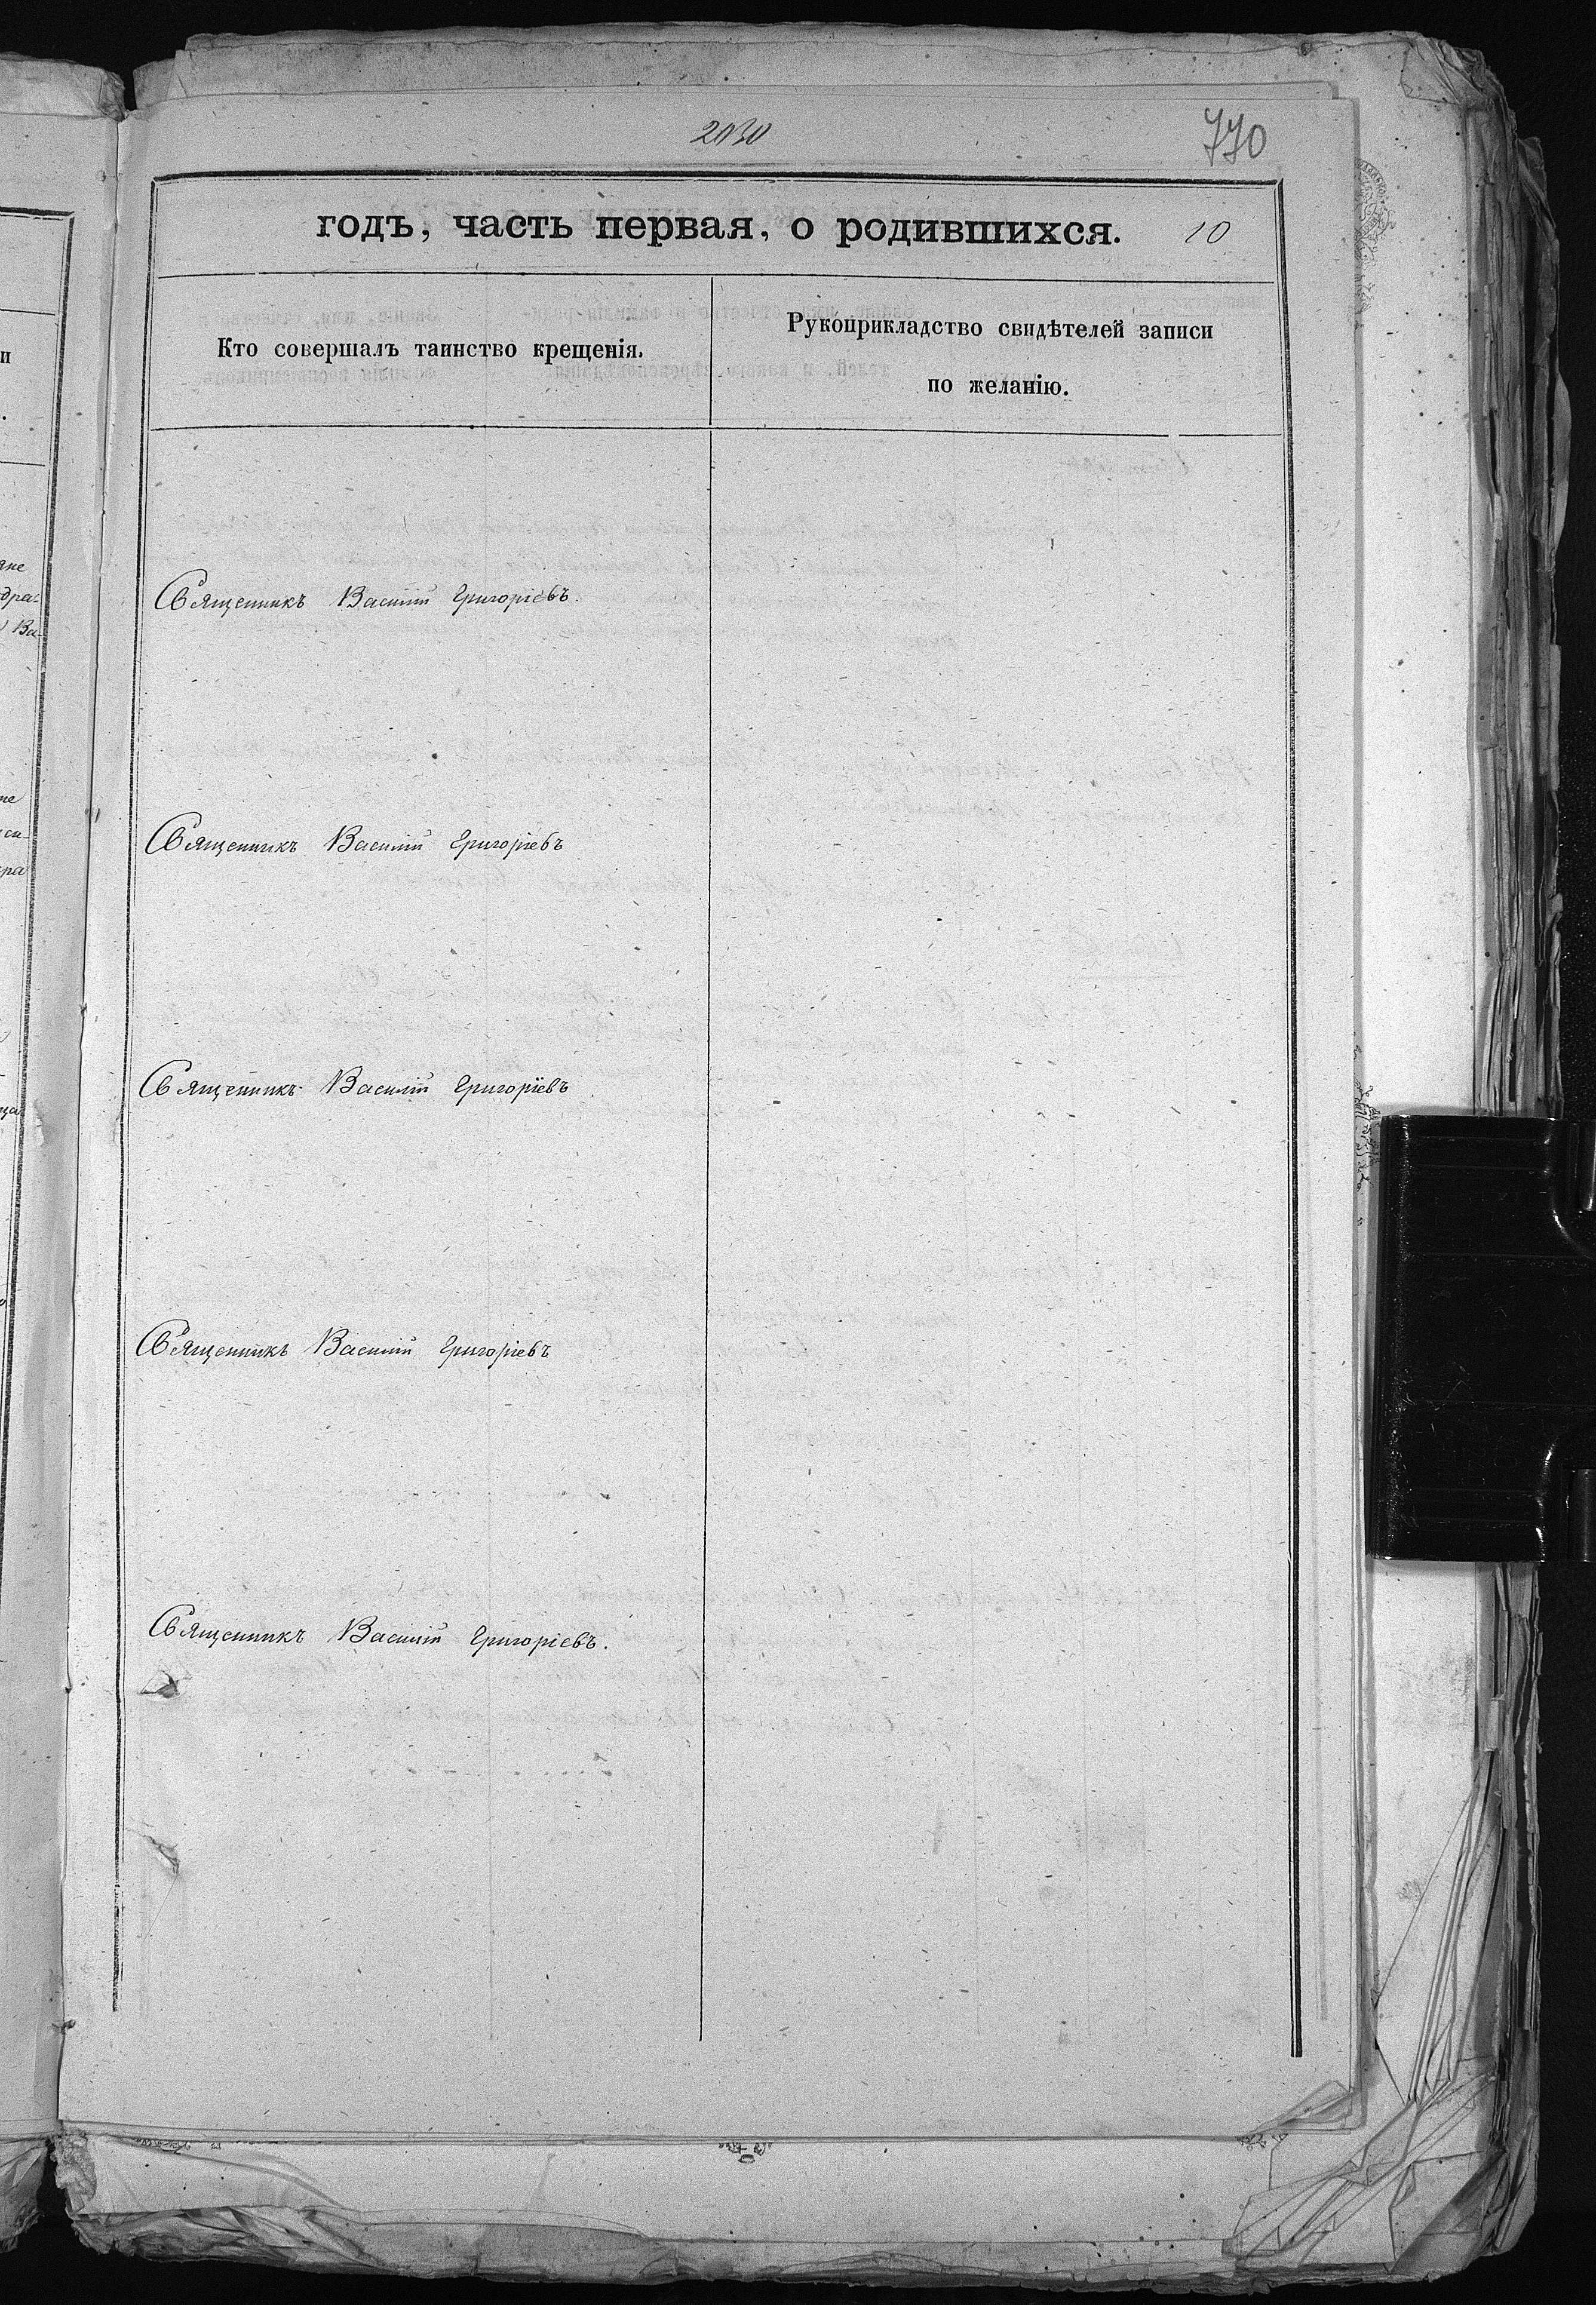 770
годъ, часть первая, о родившихся. 10
Кто совершалъ таинство крещенія.
Рукоприкладство свидѣтелей записи
по желанію.
Священникъ Василій Григоріевъ.
Священникъ Василій Григоріевъ
Священникъ Василій Григоріевъ
Священникъ Василій Григоріевъ
Священникъ Василій Григоріевъ.